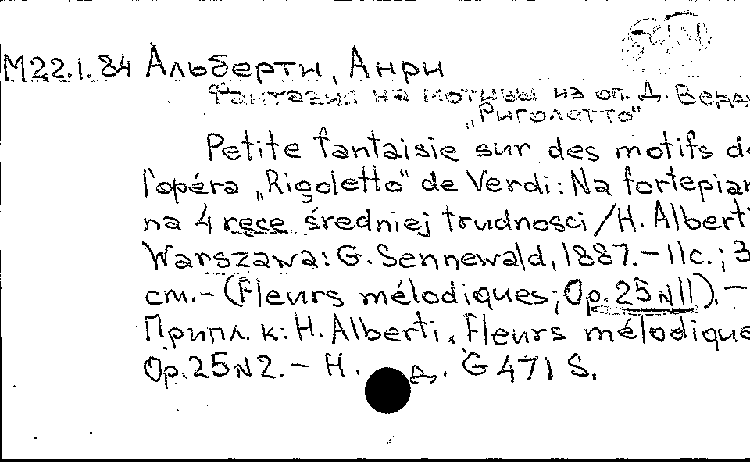 М22.1.84 Альберти, Анри
Фантазия на мотивы из оп. Д. Верди
„Риголетто“
Petite fantaisie sur des motifs de
l'opéra „Rigoletto“ de Verdi: Na fortepian
na 4 ręce średniej trudności / H. Alberti
Warszawa: G. Sennewald, 1887. – 11 с.; 3
см. – (Fleurs mélodiques; Op. 25 N II). –
Припл. к: H. Alberti. Fleurs mélodique
Op. 25 N 2. – Н. д. G 471 S.